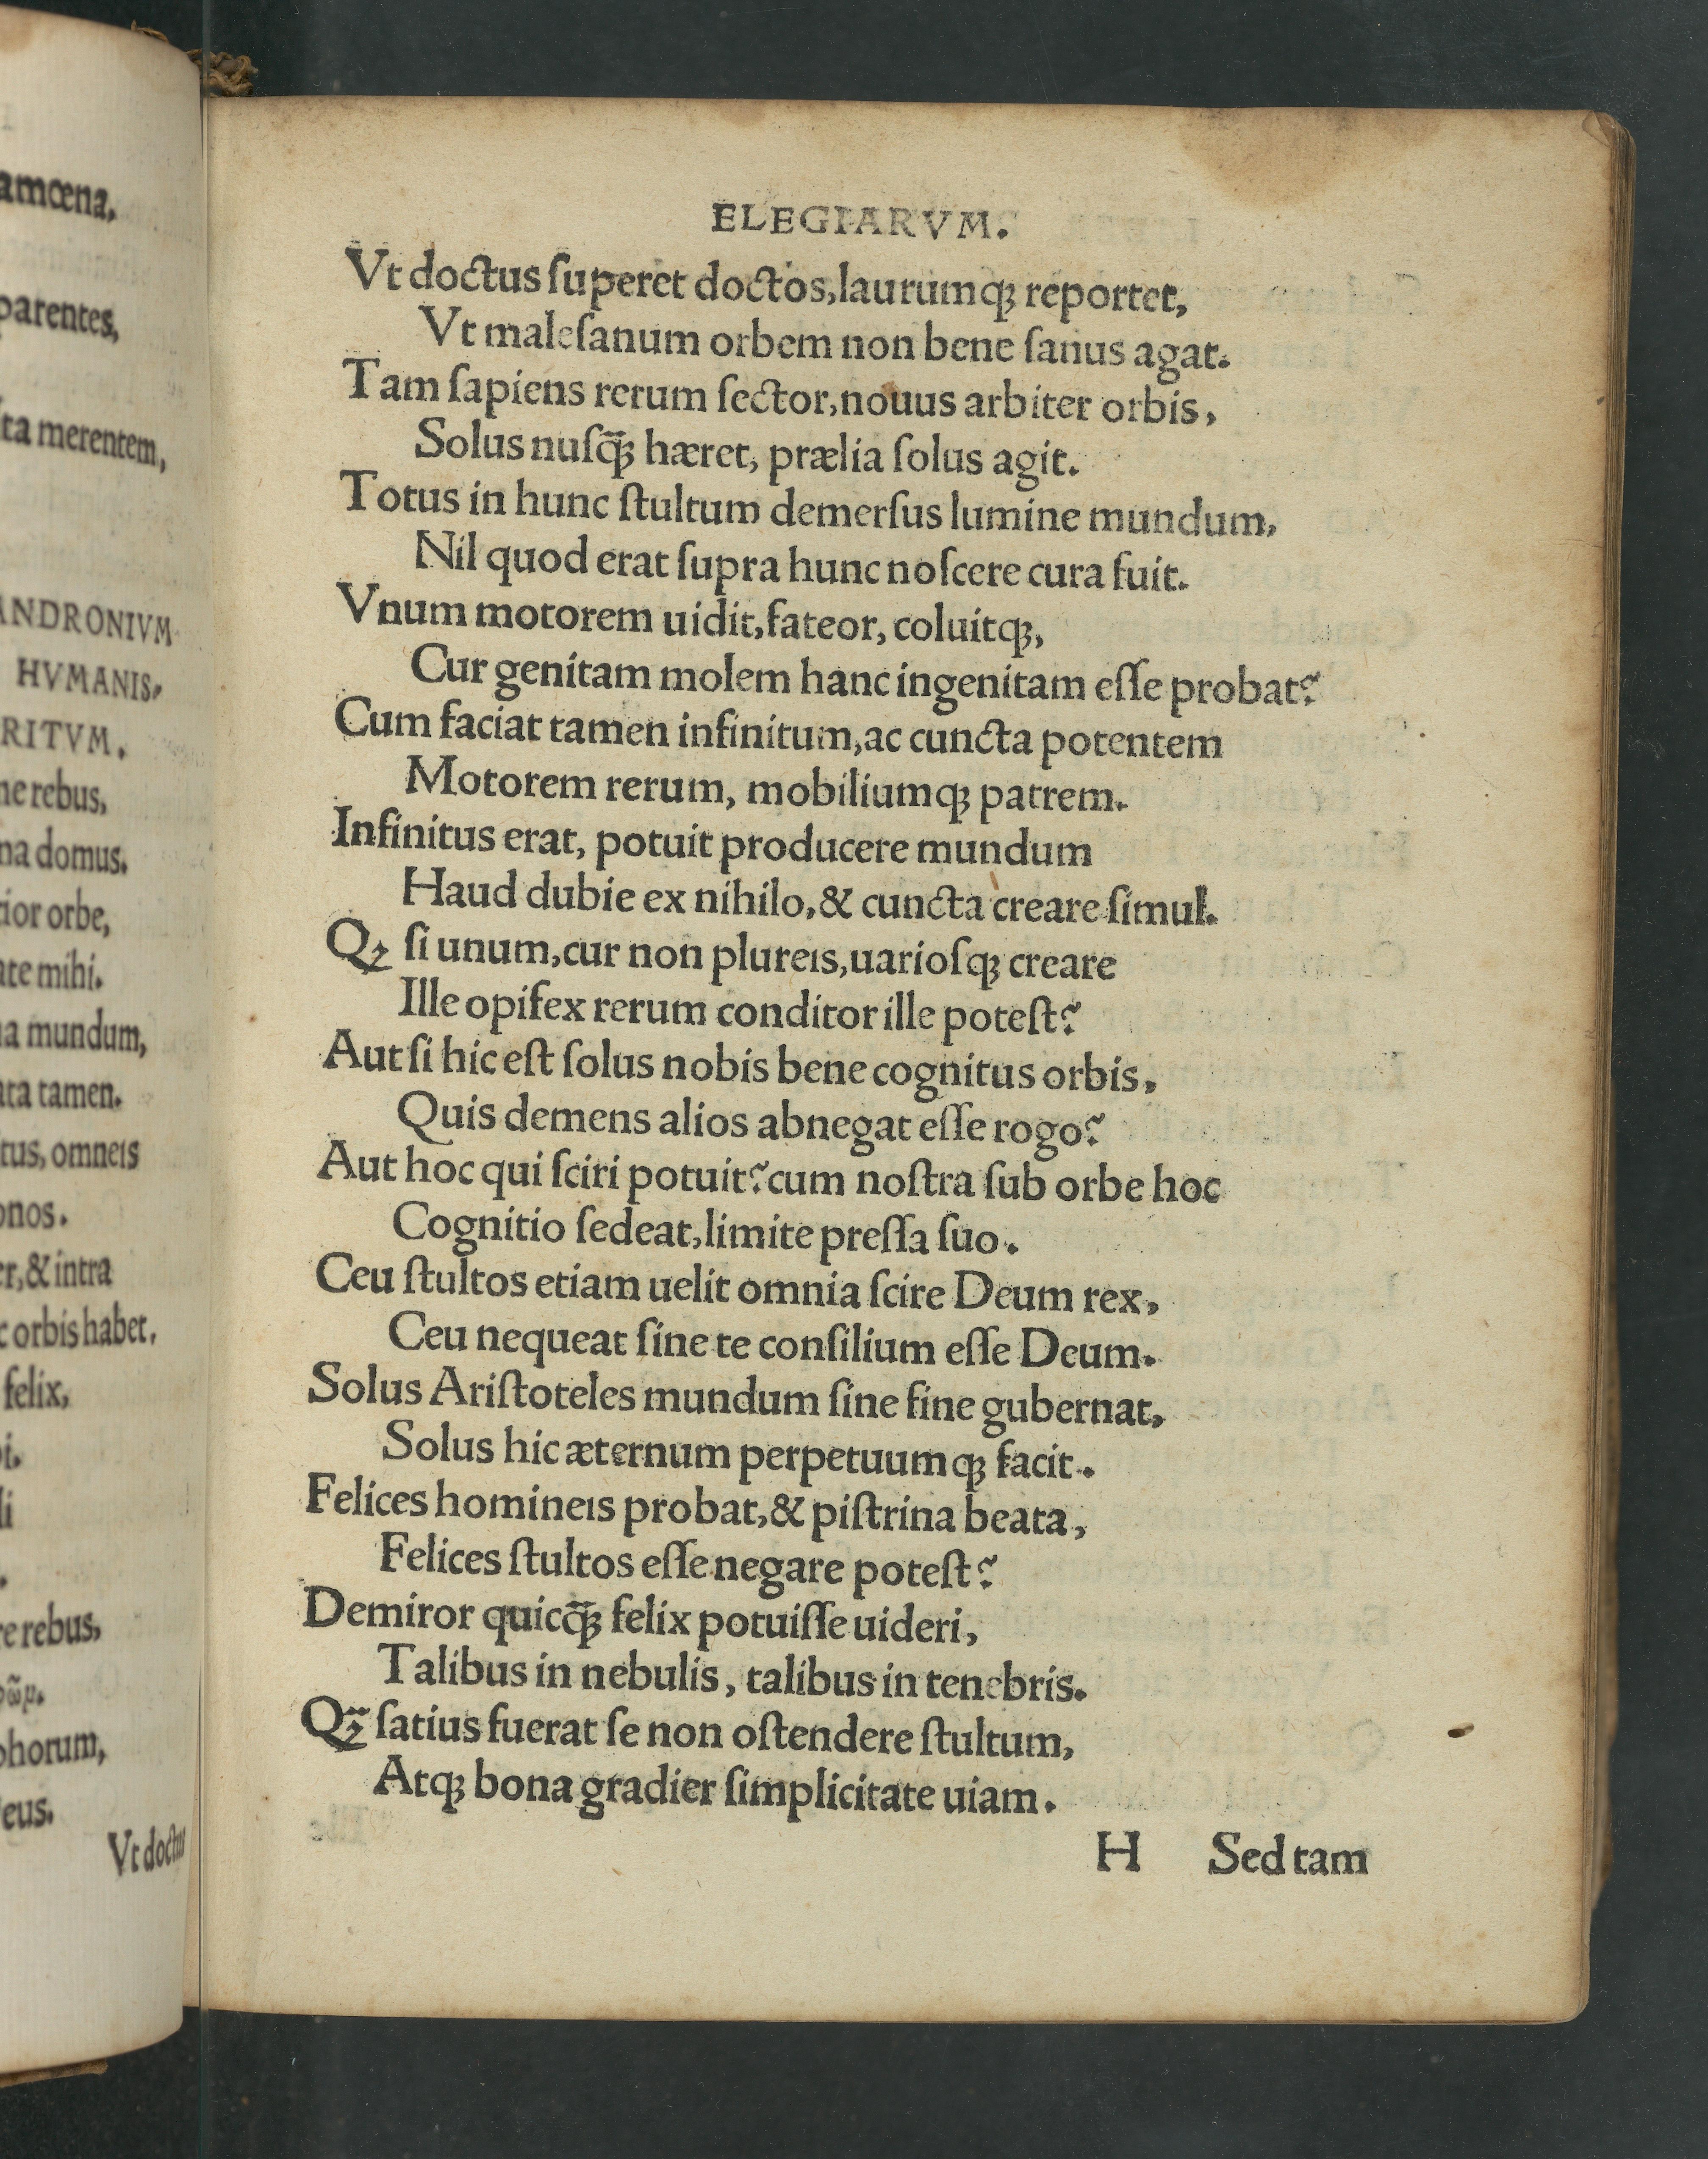 amœna,
parentes,
ta merentem,
ANDRONIVM
HVMANIS,
RITVM.
ne rebus,
na domus.
rior orbe,
ate mihi.
na mundum,
ata tamen.
tus, omneıs
onos.
er, & intra
c orbis habet.
felix,
i.
li
re rebus,
ῶμ.
phorum,
eus.
Vt doctus
ELEGIARVM.
Vt doctus ſuperet doctos, laurumqꝫ reportet,
Vt maleſanum orbem non bene ſanus agat.
Tam ſapiens rerum ſector, nouus arbiter orbis,
Solus nuſq̃ꝫ hæret, prælia ſolus agit.
Totus in hunc ſtultum demerſus lumine mundum,
Nil quod erat ſupra hunc noſcere cura fuit.
Vnum motorem uidit, fateor, coluitqꝫ,
Cur genitam molem hanc ingenitam eſſe probat?
Cum faciat tamen infinitum, ac cuncta potentem
Motorem rerum, mobiliumqꝫ patrem.
Infinitus erat, potuit producere mundum
Haud dubie ex nihilo, & cuncta creare ſimul.
Qꝫ ſi unum, cur non plureıs, uarioſqꝫ creare
Ille opifex rerum conditor ille poteſt?
Aut ſi hic eſt ſolus nobis bene cognitus orbis,
Quis demens alios abnegat eſſe rogo?
Aut hoc qui ſciri potuit? cum noſtra ſub orbe hoc
Cognitio ſedeat, limite preſſa ſuo.
Ceu ſtultos etiam uelit omnia ſcire Deum rex,
Ceu nequeat ſine te conſilium eſſe Deum.
Solus Ariſtoteles mundum ſine fine gubernat,
Solus hic æternum perpetuumqꝫ facit.
Felices homineıs probat, & piſtrina beata,
Felices ſtultos eſſe negare poteſt?
Demiror quicq̃ꝫ felix potuiſſe uideri,
Talibus in nebulis, talibus in tenebris.
Q̃ꝫ ſatius fuerat ſe non oſtendere ſtultum,
Atqꝫ bona gradier ſimplicitate uiam.
H Sed tam